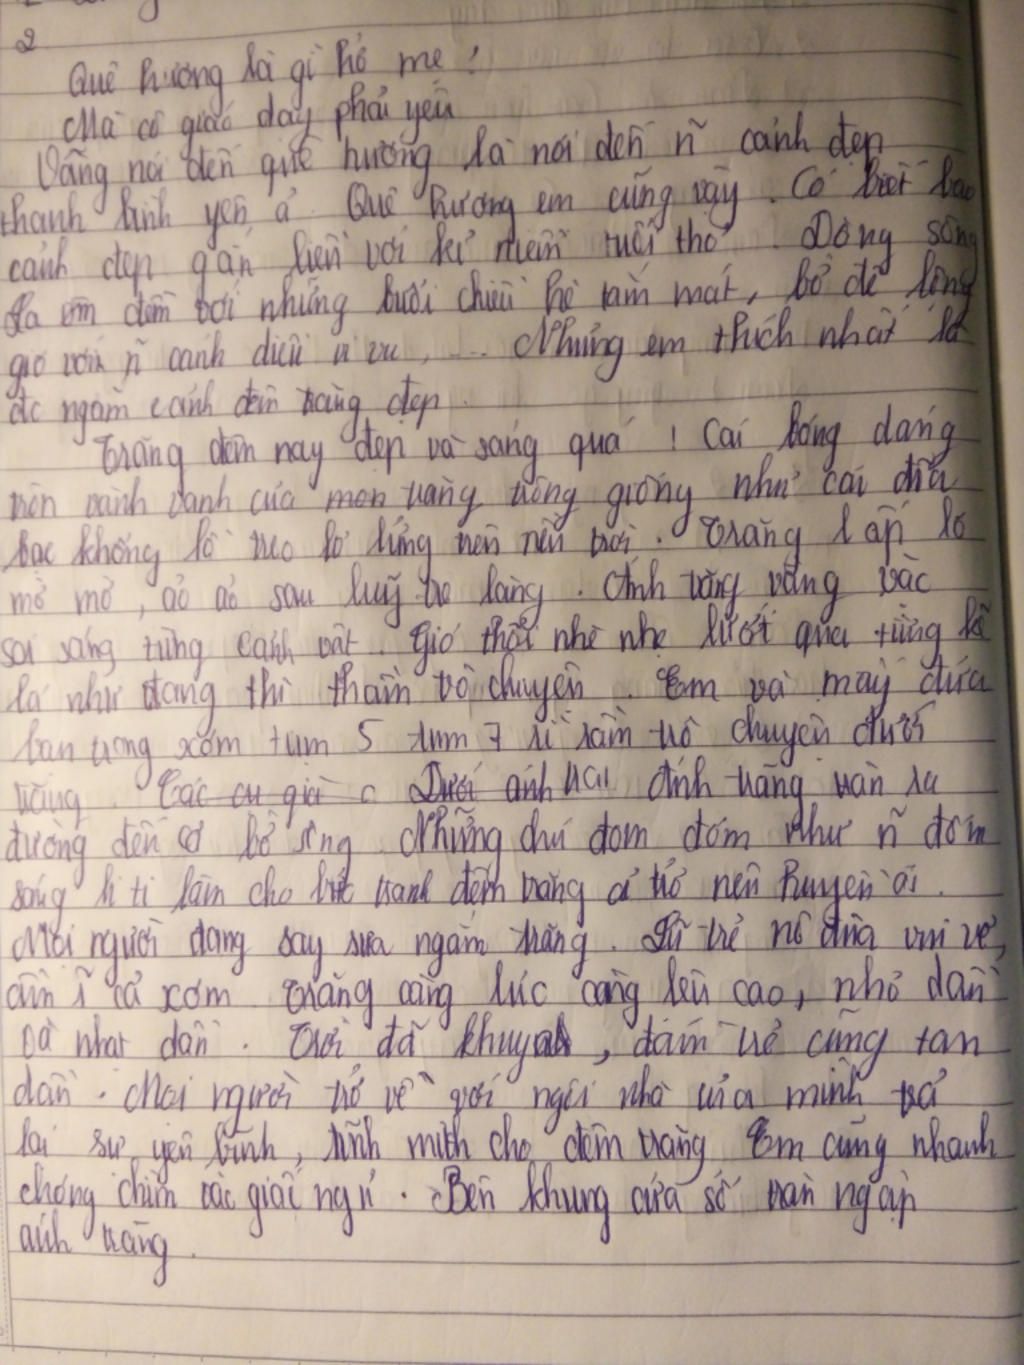 2
Quê hương là gì hở mẹ ?
Mà cô giáo dạy phải yêu
Vâng nói đến quê hương là nói đến ~ cảnh đẹp
thanh bình yên ả. Quê hương em cũng vậy. Có biết bao
cảnh đẹp gắn liền với kỉ niệm tuổi thơ. Dòng sông
êm đềm với những buổi chiều hè tắm mát, bờ đê lộng
gió với ~ cánh diều vi vu, ... Nhưng em thích nhất là
đc ngắm cảnh đêm trăng đẹp.
Trăng đêm nay đẹp và sáng quá ! Cái bóng dáng
tròn vành vạnh của mặt trăng trông giống như cái đĩa
bạc khổng lồ treo lơ lửng trên nền trời. Trăng lấp ló
mờ mờ, ảo ảo sau luỹ tre làng. Ánh trăng vằng vặc
soi sáng từng cảnh vật. Gió thổi nhè nhẹ lướt qua từng kẽ
lá như đang thì thầm trò chuyện. Em và mấy đứa
bạn trong xóm tụm 5 tụm 7 rì rầm trò chuyện dưới
trăng. Các cụ già c Dưới ánh Ánh trăng tràn ra
đường đến bờ Những chú đom đóm như ~ đốm
sáng li ti làm cho bức tranh đêm trăng trở nên huyền ảo.
Mọi người đang say sưa ngắm trăng. Lũ trẻ nô đùa vui vẻ,
ầm ĩ cả xóm. Trăng càng lúc càng lên cao, nhỏ dần
và nhạt dần. Trời đã khuya, đám trẻ cũng tan
dần. Mọi người trở về với ngôi nhà của mình trả
lại sự yên bình, tĩnh mịch cho đêm trăng. Em cũng nhanh
chóng chìm vào giấc ngủ. Bên khung cửa sổ tràn ngập
ánh trăng.